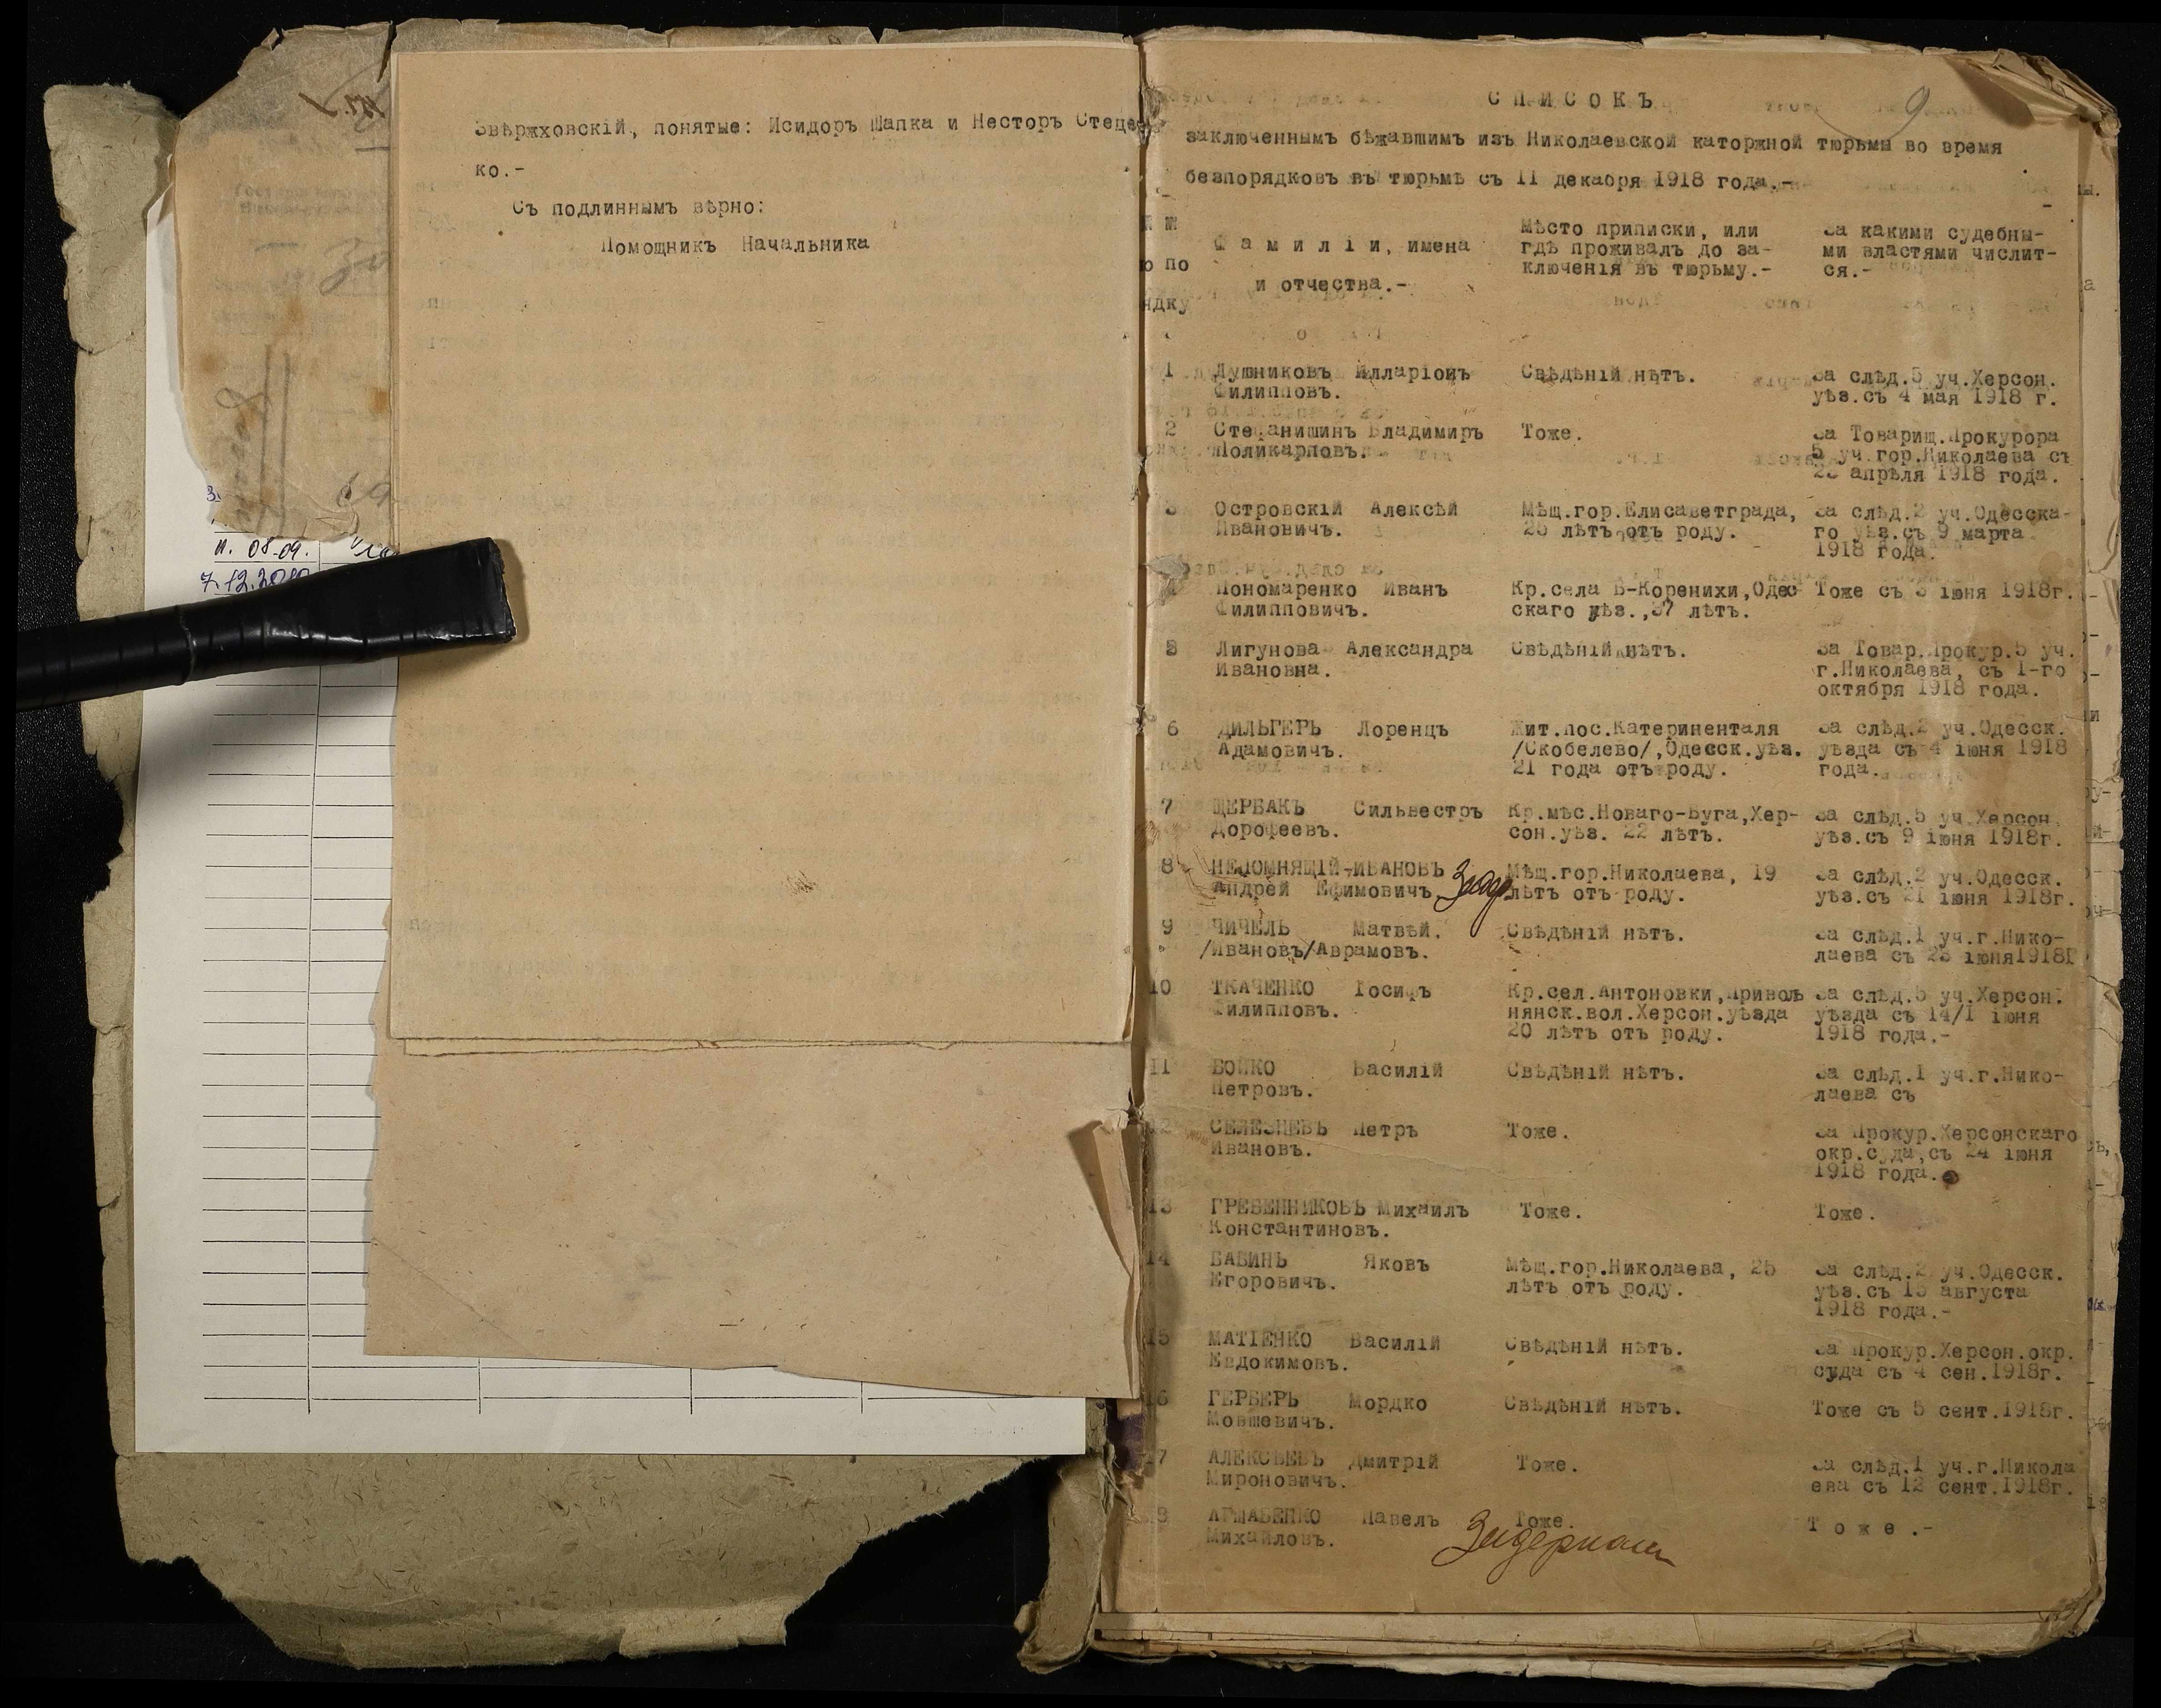 Звѣржховскій, понятые: Исидоръ Шапка и Несторъ Стецен
ко.-
Съ подлиннымъ вѣрно:
Помощникъ Начальника
п. 08-09.
9
СПИСОКЪ
заключеннымъ бѣжавшимъ изъ Николаевской каторжной тюрьмы во время
безпорядковъ въ тюрьмѣ съ 11 декабря 1918 года.-
Фамиліи, имена
и отчества.-
Мѣсто приписки, или
гдѣ проживалъ до за-
ключенія въ тюрьму.-
За какими судебны-
ми властями числит-
ся.-
по
ядку
1 Душниковъ Илларіонъ Свѣдѣній нѣтъ. За слѣд.5 уч.Херсон.
Филипповъ. уѣз.съ 4 мая 1918 г.
2 Стефанишинъ Владимиръ Тоже. За Товарищ.Прокурора
Поликарповъ. 5 уч.гор.Николаева съ
апрѣля 1918 года.
3 Островскій Алексѣй Мѣщ.гор.Елисаветграда, За слѣд.2 уч.Одесска-
Ивановичъ. 25 лѣтъ отъ роду. го уѣз.съ 9 марта
1918 года.
Пономаренко Иванъ Кр.села Б-Коренихи,Одес Тоже съ 3 іюня 1918г.
Филипповичъ. скаго уѣз.,37 лѣтъ.
Лигунова Александра Свѣдѣній нѣтъ. За Товар.Прокур.5 уч.
Ивановна. г.Николаева, съ 1-го
октября 1918 года.
6 ДИЛЬГЕРЪ Лоренцъ Жит.пос.Катериненталя За слѣд.2 уч.Одесск.
Адамовичъ. /Скобелево/,Одесск.уѣз. уѣзда съ 4 іюня 1918
21 года отъ роду. года.
7 ЩЕРБАКЪ Сильвестръ Кр.мѣс.Новаго-Буга,Хер- За слѣд.5 уч.Херсон.
Дорофеевъ. сон.уѣз. 22 лѣтъ. уѣз.съ 9 іюня 1918г.
8 НЕПОМНЯЩІЙ-ИВАНОВЪ Мѣщ.гор.Николаева, 19 За слѣд.2 уч.Одесск.
Андрей Ефимовичъ. Задер лѣтъ отъ роду. уѣз.съ 21 іюня 1918г.
9 ЧИЧЕЛЬ Матвѣй. Свѣдѣній нѣтъ. За слѣд.1 уч.г.Нико-
/Ивановъ/Аврамовъ. лаева съ 23 іюня1918г
10 ТКАЧЕНКО Іосифъ Кр.сел.Антоновки,Приволь За слѣд.5 уч.Херсон.
Филипповъ. нянск.вол.Херсон.уѣзда уѣзда съ 14/1 іюня
20 лѣтъ отъ роду. 1918 года.-
11 БОЙКО Василій Свѣдѣній нѣтъ. За слѣд.1 уч.г.Нико-
Петровъ. лаева съ
12 СЕЛЕЗНЕВЪ Петръ Тоже. За Прокур.Херсонскаго
Ивановъ. окр.суда,съ 24 іюня
1918 года.
13 ГРЕБЕННИКОВЪ Михаилъ Тоже. Тоже.
Константиновъ.
14 БАБИНЪ Яковъ Мѣщ.гор.Николаева, 25 За слѣд.2 уч.Одесск.
Егоровичъ. лѣтъ отъ роду. уѣз.съ 15 августа
1918 года.-
15 МАТІЕНКО Василій Свѣдѣній нѣтъ. За Прокур.Херсон.окр.
Евдокимовъ. суда съ 4 сен.1918г.
16 ГЕРБЕРЪ Мордко Свѣдѣній нѣтъ. Тоже съ 5 сент.1918г.
Мовшевичъ.
17 АЛЕКСѢЕВЪ Дмитрій Тоже. За слѣд.1 уч.г.Никола
Мироновичъ. ева съ 12 сент.1918г.
18 Павелъ Тоже. Тоже.-
Михайловъ. Задержан